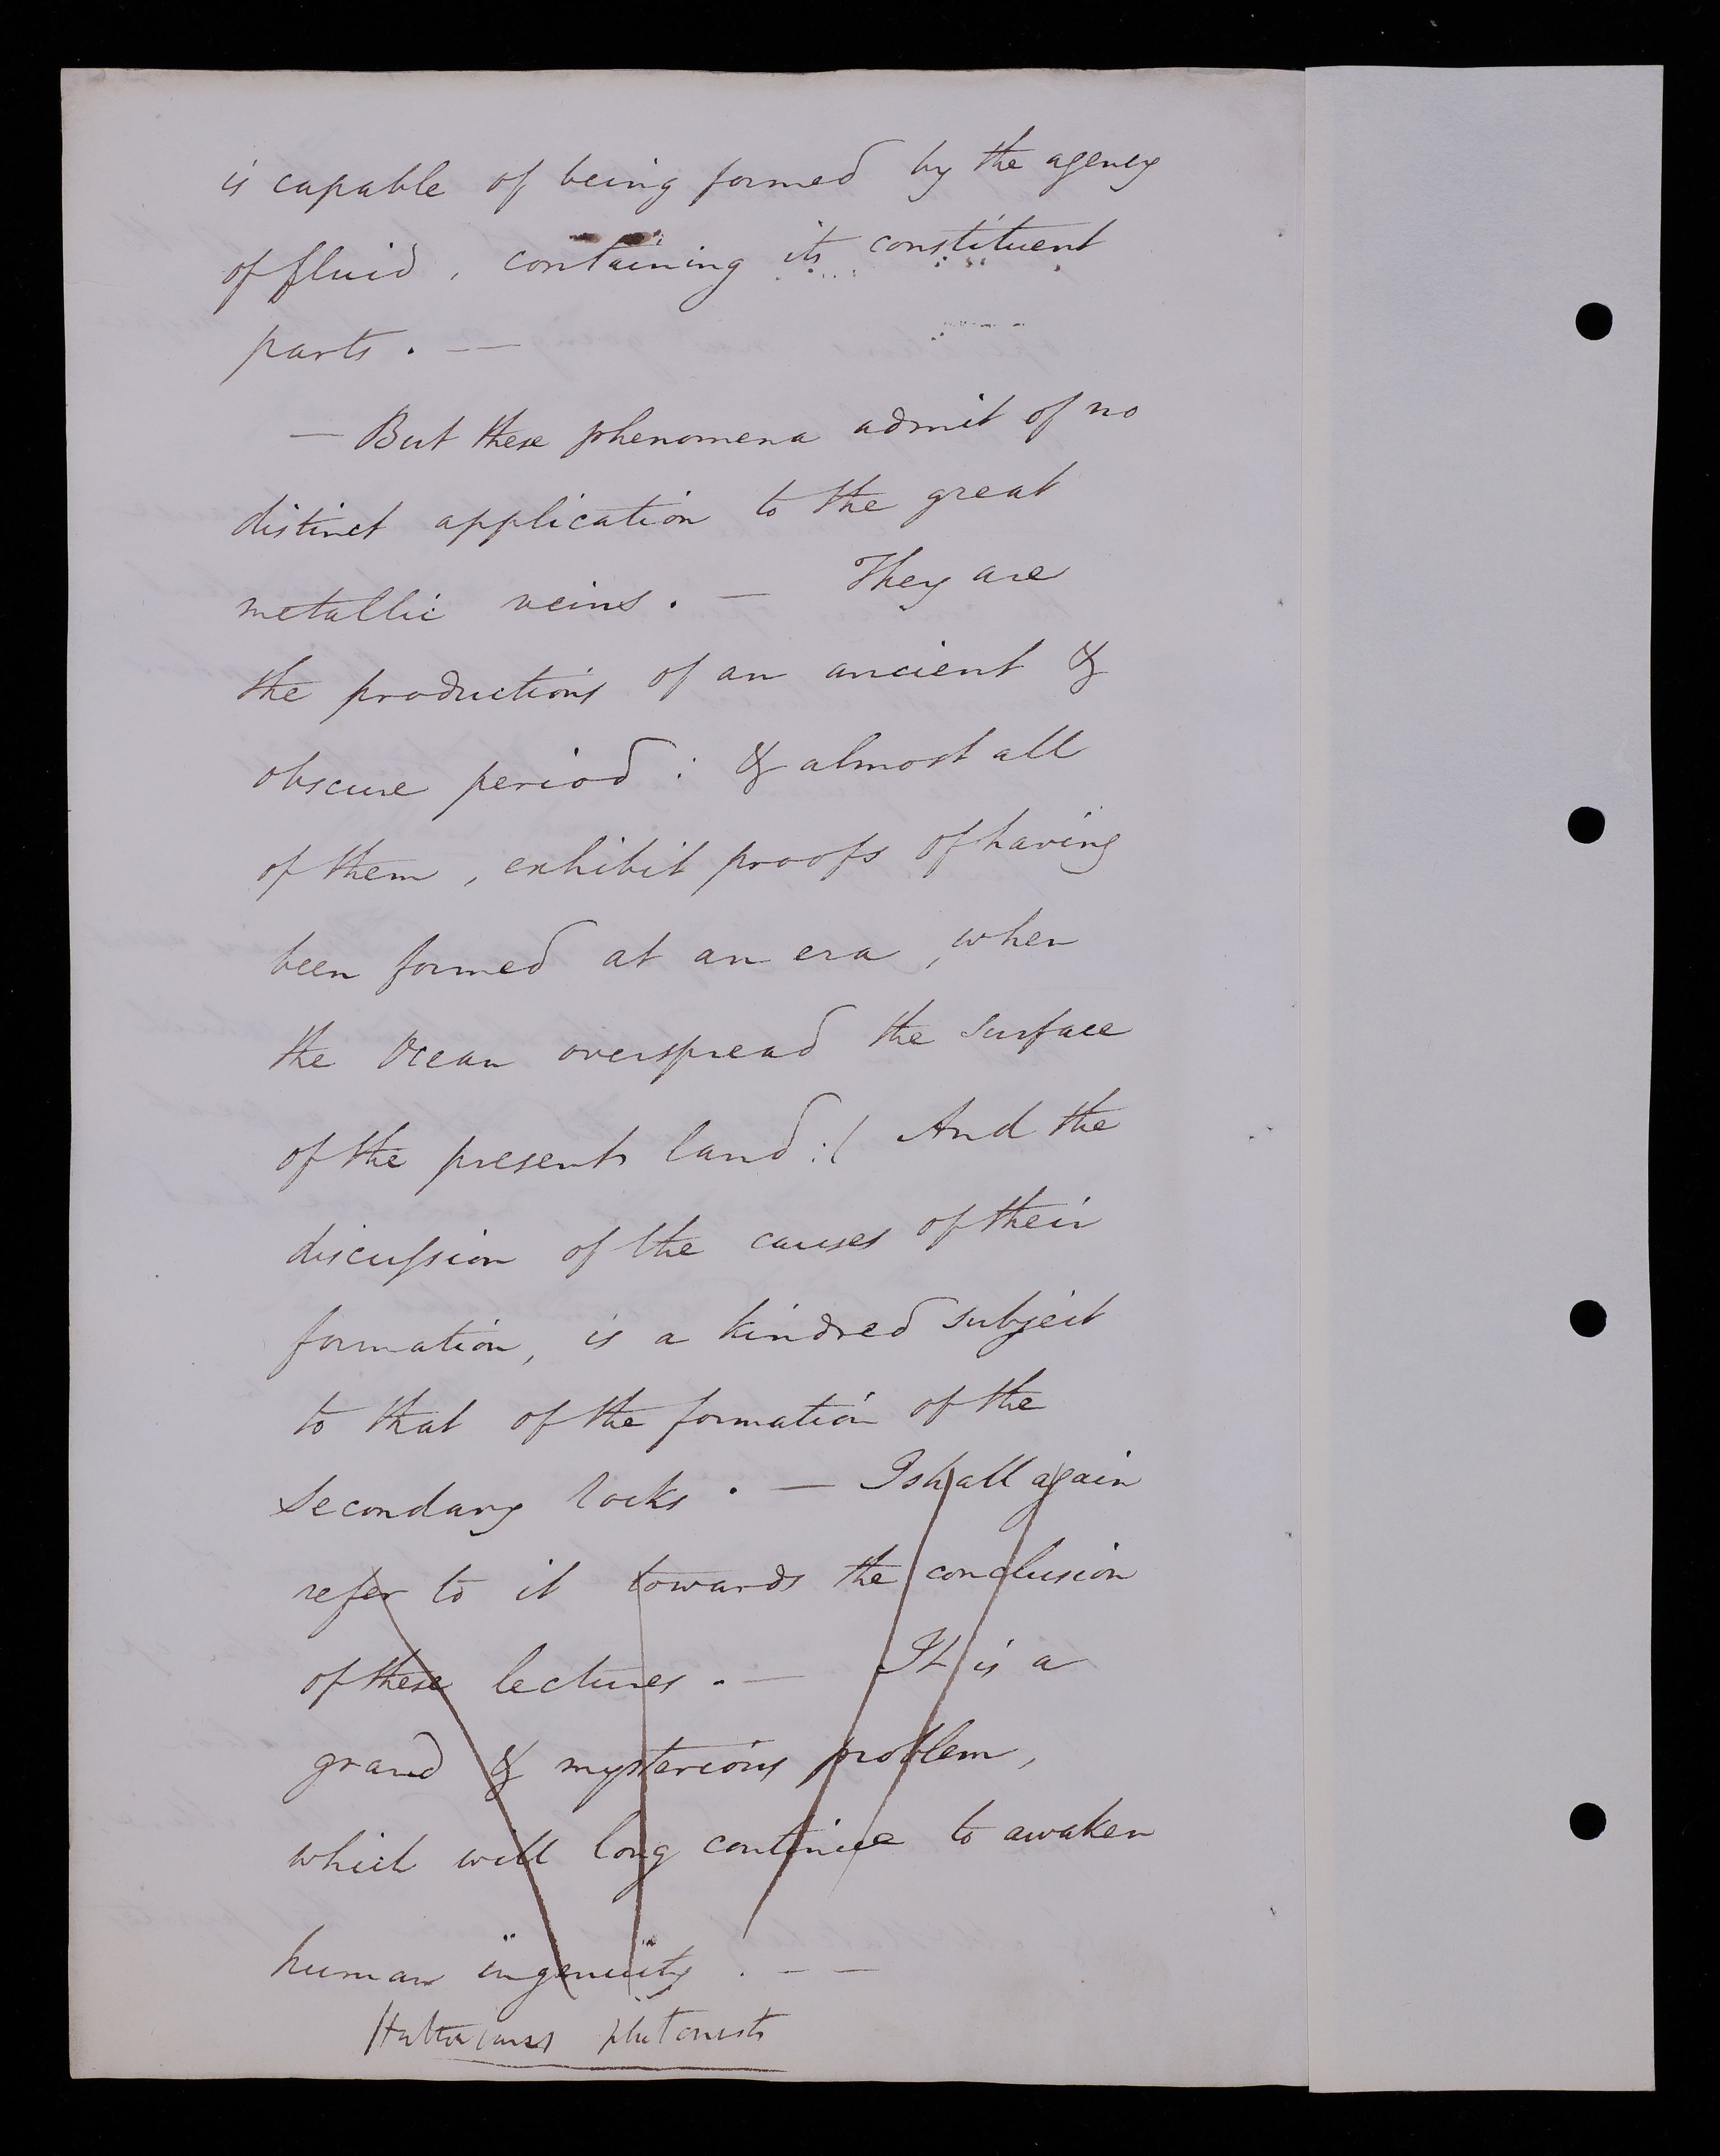 is capable of being formed by the agency
of fluid, containing its constituent
parts. —
— But these phenomena admit of no
distinct application to the great
metallic veins. — They are
the productions of an ancient &
obscure period: & almost all
of them, exhibit proofs of having
been formed at an era, when
the Ocean overspread the surface
of the present land:/ And the
discussion of the causes of their
formation, is a kindred subject
to that of the formation of the
Secondary rocks. — I shall again
refer to it towards the conclusion
of these lectures. — It is a
grand & mysterious problem,
which will long continue to awaken
human ingenuity. — —
Huttonians plutonists